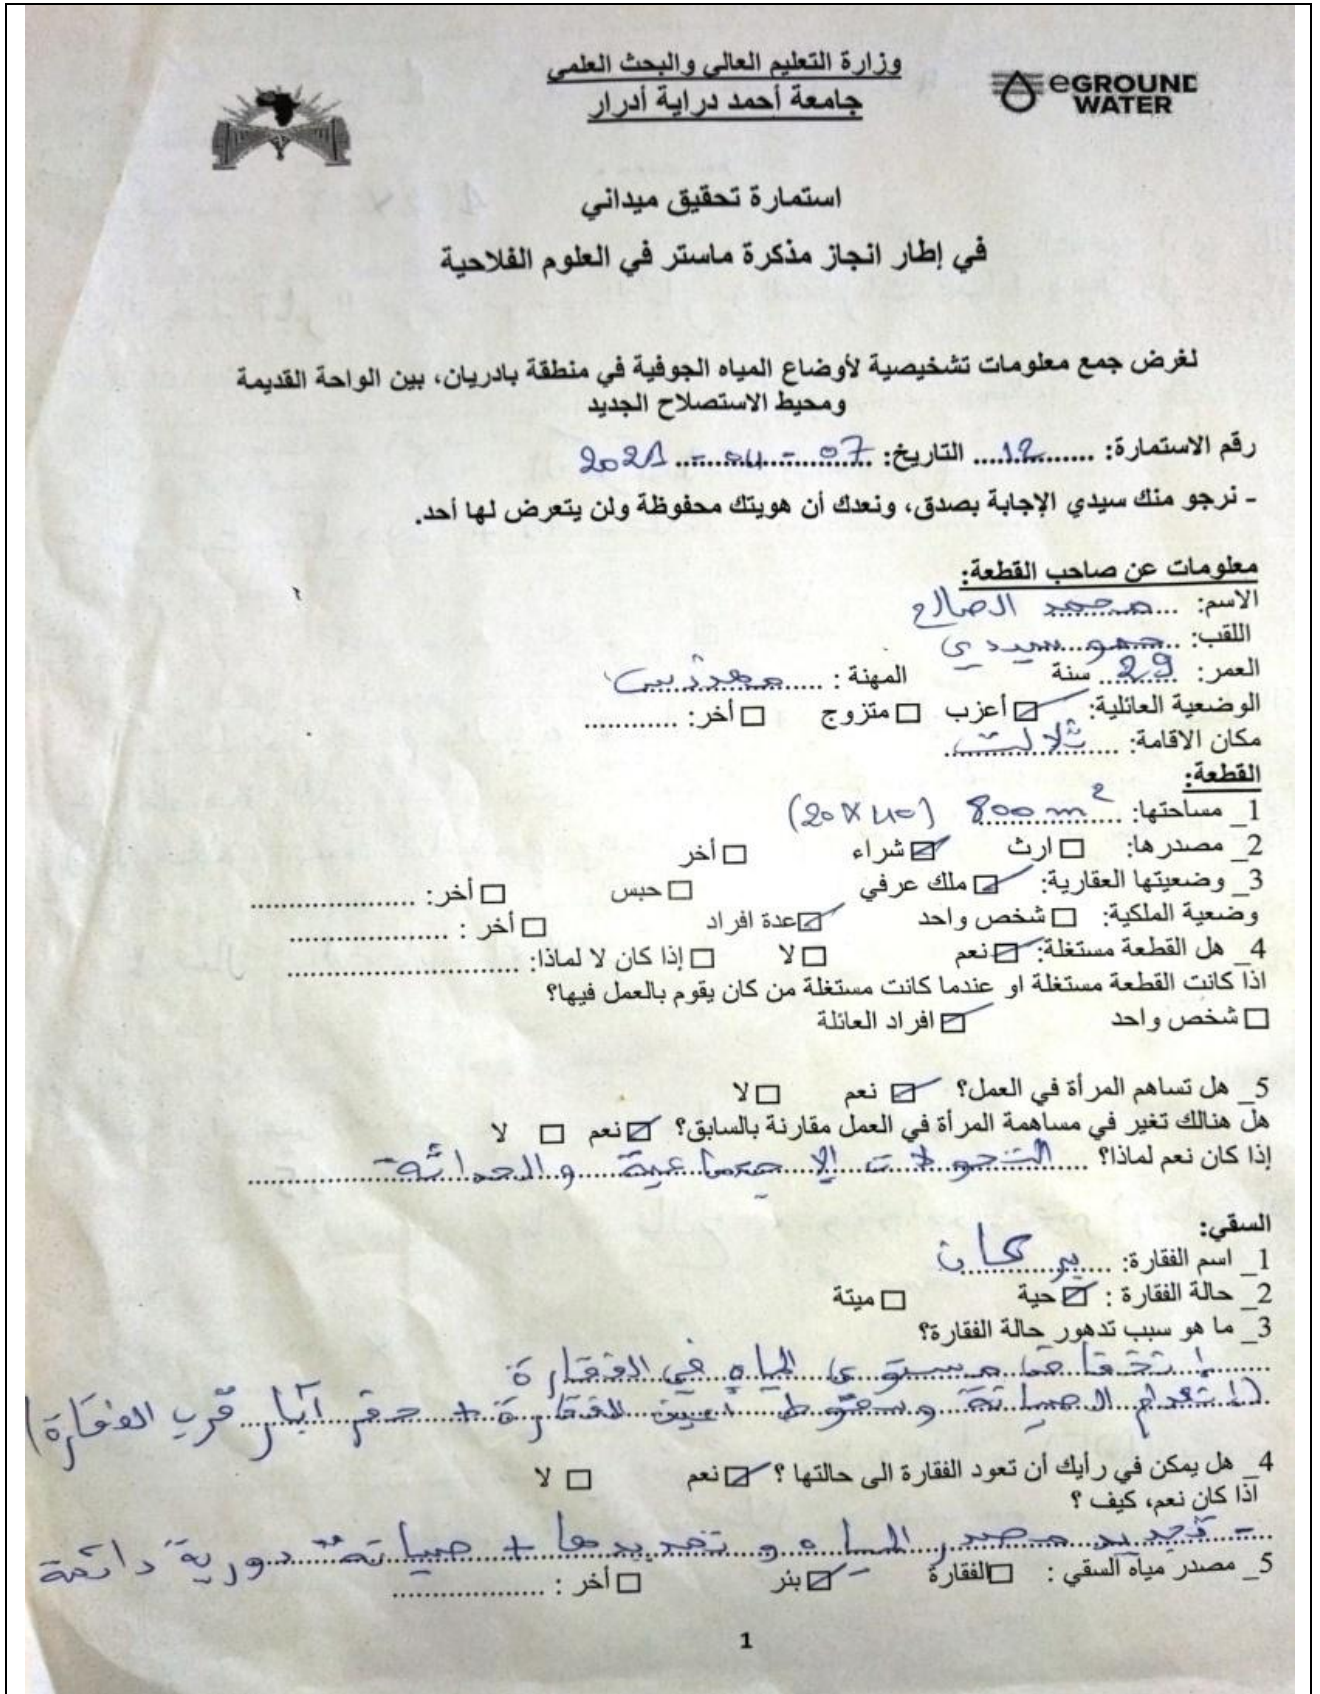 وزارة التعليم العالي والبحث العلمي
جامعة أحمد دراية أدرار
eGROUND WATER
استمارة تحقيق ميداني
في إطار انجاز مذكرة ماستر في العلوم الفلاحية
لغرض جمع معلومات تشخيصية لأوضاع المياه الجوفية في منطقة بادريان، بين الواحة القديمة
ومحيط الاستصلاح الجديد
رقم الاستمارة: ......12...... التاريخ: 07-04-2021
- نرجو منك سيدي الإجابة بصدق، ونعدك أن هويتك محفوظة ولن يتعرض لها أحد.
معلومات عن صاحب القطعة:
الاسم: ... محمد الصالح
اللقب: ... حمو سيدي
العمر: 29 سنة المهنة : ...... مهندس
الوضعية العائلية: ☑ أعزب □ متزوج □ أخر: ............
مكان الاقامة: ...... ثلاث
القطعة:
1_ مساحتها: 800 m² (20 x 40)
2_ مصدرها: □ ارث ☑ شراء □ أخر
3_ وضعيتها العقارية: ☑ ملك عرفي □ حبس □ أخر: ....................
وضعية الملكية: □ شخص واحد ☑ عدة افراد □ أخر : ....................
4_ هل القطعة مستغلة: ☑ نعم □ لا □ إذا كان لا لماذا: ............................
اذا كانت القطعة مستغلة او عندما كانت مستغلة من كان يقوم بالعمل فيها؟
□ شخص واحد ☑ افراد العائلة
5_ هل تساهم المرأة في العمل؟ ☑ نعم □ لا
هل هنالك تغير في مساهمة المرأة في العمل مقارنة بالسابق؟ ☑ نعم □ لا
إذا كان نعم لماذا؟ .... التحولات الاجتماعية والحداثة
السقي:
1_ اسم الفقارة:
2_ حالة الفقارة : ☑ حية □ ميتة
3_ ما هو سبب تدهور حالة الفقارة؟
انخفاض مستوى المياه في الفقارة
(انعدام الصيانة وسقوط أعين الفقارة + حفر آبار قرب الفقارة)
4_ هل يمكن في رأيك أن تعود الفقارة الى حالتها ؟ ☑ نعم □ لا
اذا كان نعم، كيف ؟
- تجديد مصدر المياه و تمديدها + صيانة دورية دائمة
5_ مصدر مياه السقي : □ الفقارة ☑ بئر □ أخر : ....................
1